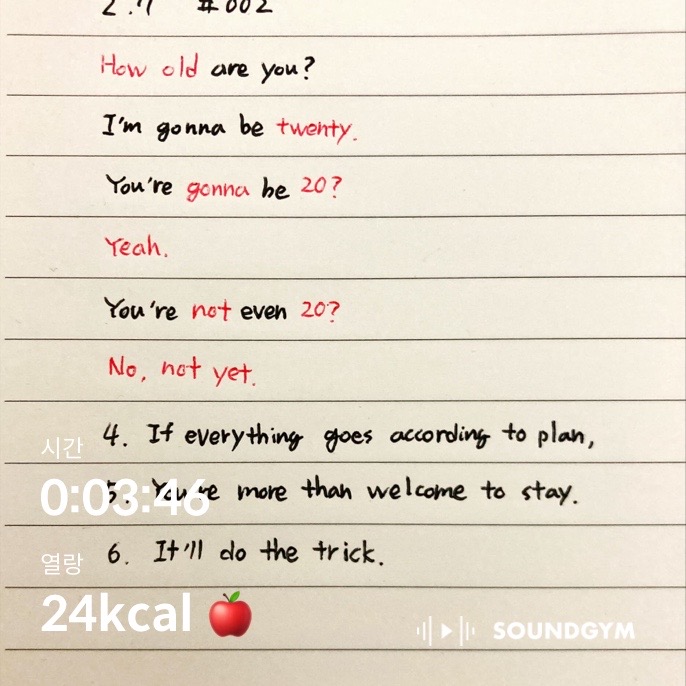 2.9 #002
How old are you?
I'm gonna be twenty.
You're gonna be 20?
Yeah.
You're not even 20?
No, not yet.
4. If everything goes according to plan,
시간
5. You're more than welcome to stay.
0:03:46
6. It'll do the trick.
열량
24kcal
SOUNDGYM